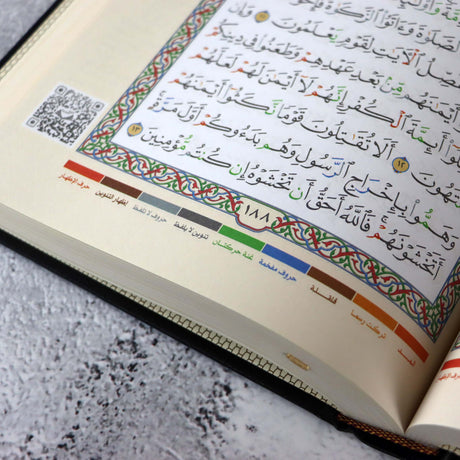 ٱلصَّلَوٰةَ وَءَاتَوُا۟ ٱلزَّكَوٰةَ
صِّلُ ٱلْءَايَٰتِ لِقَوْمٍ يَعْلَمُونَ ١١ وَإِن
أَيْمَٰنَهُم مِّنۢ بَعْدِ عَهْدِهِمْ وَطَعَنُوا۟ فِى دِينِكُمْ
تِلُوٓا۟ أَئِمَّةَ ٱلْكُفْرِ إِنَّهُمْ لَآ أَيْمَٰنَ لَهُمْ لَعَلَّهُمْ
نتَهُونَ ١٢ أَلَا تُقَٰتِلُونَ قَوْمًا نَّكَثُوٓا۟ أَيْمَٰنَهُمْ
وَهَمُّوا۟ بِإِخْرَاجِ ٱلرَّسُولِ وَهُم بَدَءُوكُمْ أَوَّلَ مَرَّةٍ
أَتَخْشَوْنَهُمْ فَٱللَّهُ أَحَقُّ أَن تَخْشَوْهُ إِن كُنتُم مُّؤْمِنِينَ ١٣
١٨٨
المد
تركت رسما
قلقلة
حروف مفخمة
غنة حركتان
تنوين لا يلفظ
حروف لا تلفظ
إظهار التنوين
حرف الإظهار